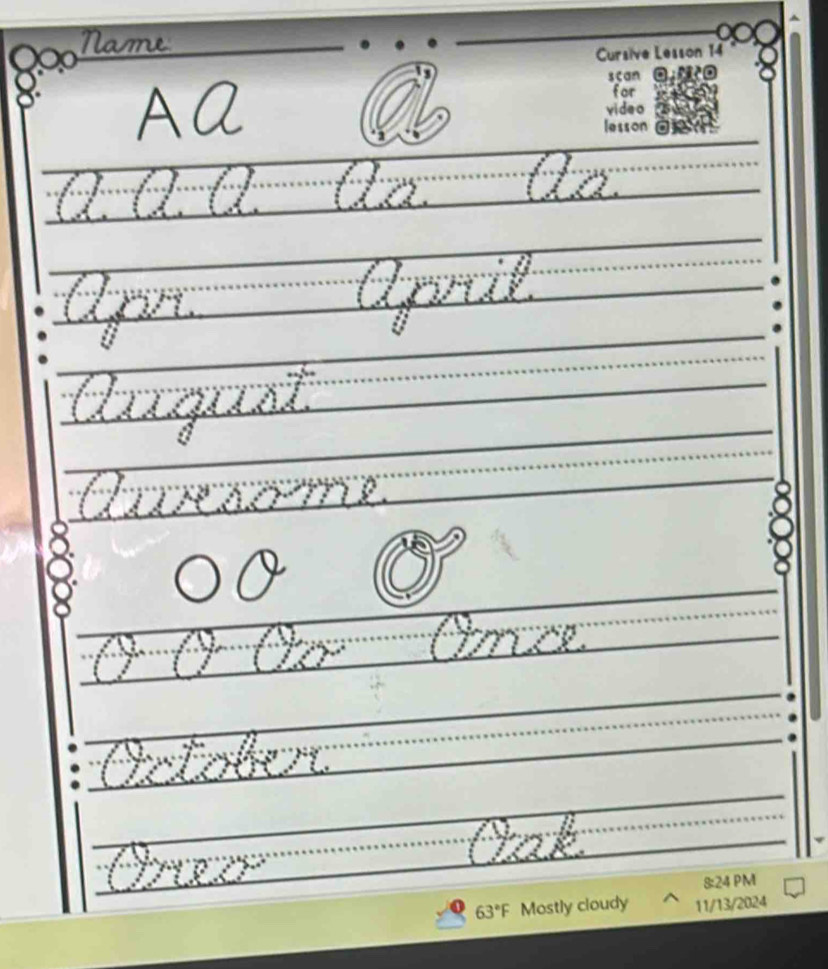 Name:
Cursive Lesson 14
scan
for
video
lesson
A a
a a a aa aa
apr april
august
awesome
O O
O O Oo Once
October
Oreo Oak
63°F Mostly cloudy
8:24 PM
11/13/2024